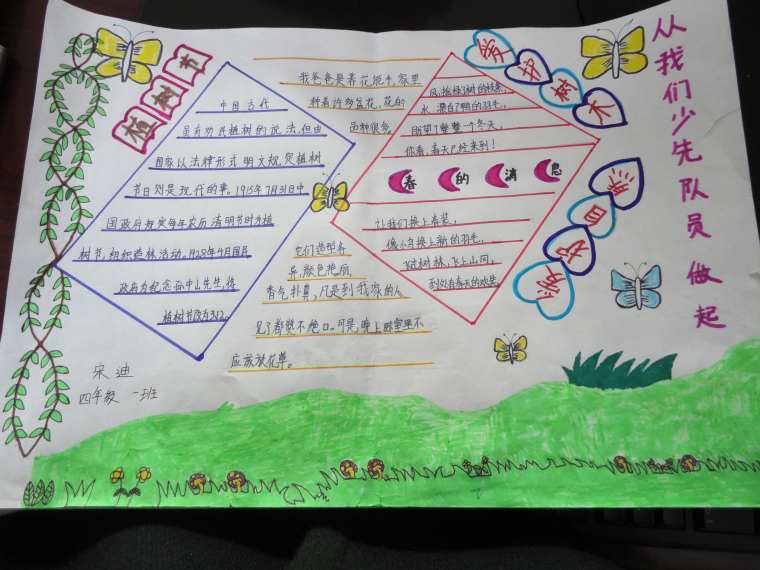 植树节
中国古代
虽有劝民植树的说法,但由
国家以法律形式明文规定植树
节日则是现代的事。1915年7月31日中
国政府规定每年农历清明节时为植
树节,组织造林活动。1928年4月国民
政府为纪念孙中山先生,将
植树节改为3.12。
宋迪
四年级 一班
我爸爸是养花能手,家里
种着许多盆花,花的
品种很多,
它们造型各
异,颜色艳丽,
香气扑鼻,凡是到我家的人
见了都赞不绝口。可是,晚上卧室里不
应该放花草。
爱护树木
风,摇绿了树的枝条,
水,漂白了鸭的羽毛,
盼望了整整一个冬天,
你看,春天已经来到!
春的消息
让我们换上春装,
像小鸟换上新的羽毛,
飞过树林,飞上山冈,
到处有春天的欢笑。
爱护自然
从我们少先队员做起